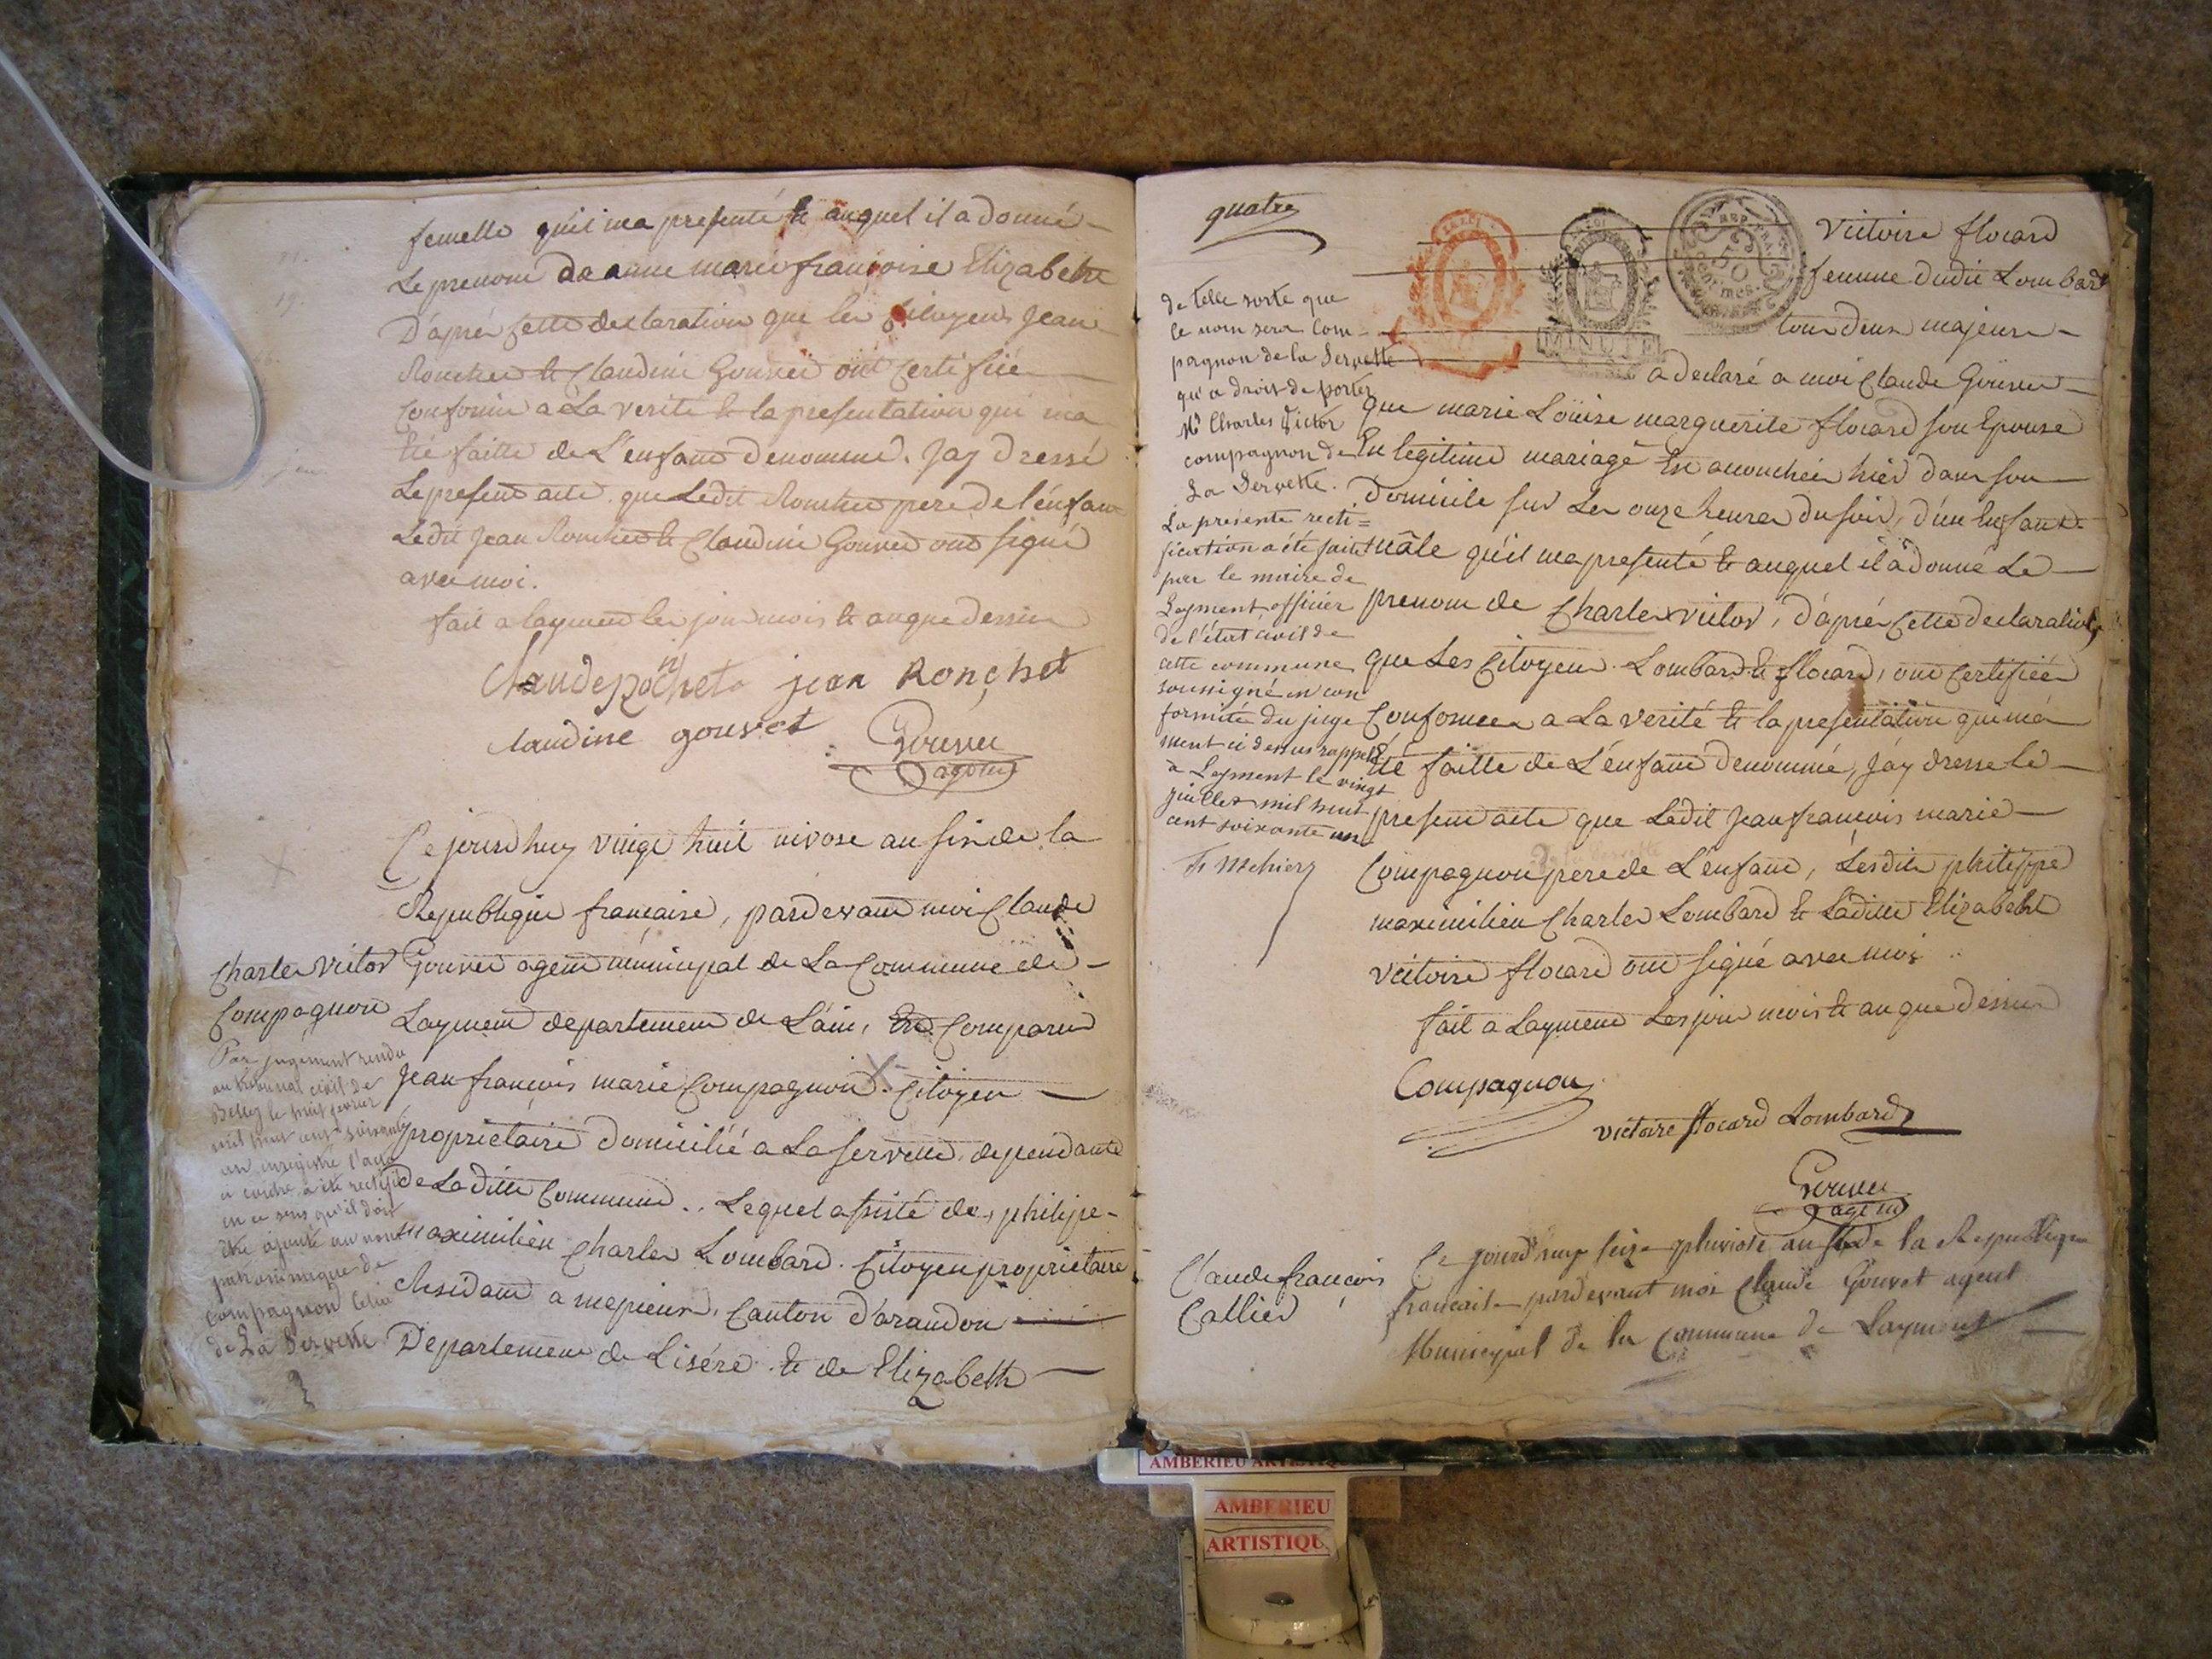 femelle qu'il ma presenté et auquel il a donné
Le prenom de anne marie françoise Elizabeth
D'après cette declaration que les citoyens Jean
Ronchet et Claudine Gouvet ont certifiée
conforme a La verité et la presentation qui ma
été faitte de L'enfant denommé. Jay dressé
Le present acte que Ledit Ronchet pere de l'enfant
Ledit Jean Ronchet et Claudine Gouvet ont signé
avec moi.
fait a layment les jour mois et an que dessus
Claude Ronchet jean Ronchet
claudine gouvet Gouvet
agent
Ce jourdhuy vingt huit nivose an six de la
Republique française, pardevant moi Claude
Gouvet agent municipal de La Commune de
Layment departement de L'ain, Est Comparu
Jean françois marie Compagnon X. Citoyen
propriétaire domicilié a La servette, dependante
de Laditte Commune.. Lequel assisté de, philipe
maximilien Charles Lombard. Citoyen propriétaire
Residant a mepieux, Canton d'arandon
Departement de Lisére. et de Elizabeth
Charles Victor
Compagnon
Par jugement rendu
au tribunal civil de
Belley le huit fevrier
mil huit cent soixante
un enregistré l'acte
ci contre a été rectifié
en ce sens qu'il doit
être ajouté au nom
patronimique de
Compagnon celui
de La Servette
quatre
MINUTE
REP. FRA.
50
centimes.
Victoire flocard
femme dudit Lombard
tous deux majeurs
a declaré a moi Claude Gouvet
que marie Loüise marguerite flocard son Epouse
En legitime mariage Est acouchée hier dans son
domicile sur Les onze heures du soir, d'un Enfant
mâle qu'il ma presenté et auquel il à donné Le
prenom de Charles victor, d'après cette declaration
que Les Citoyens Lombard et flocard, ont certifiée
Conforme a La verité et la presentation qui ma
été faitte de L'enfant denommé, jáy dressé le
present acte que Ledit Jean françois marie
Compagnon pere de L'enfant, Lesdits philippe
maximilien Charles Lombard et Laditte Elizabeth
victoire flocard ont signé avec moi
fait a Layment Les jour mois et an que dessus
Compagnon
victoire flocard Lombard
Gouvet
agent
de telle sorte que
le nom sera Com-
pagnon de la Servette
qu'a droit de porter
Mr Charles Victor
compagnon de
La Servette.
La présente recti=
fication a été faite
par le maire de
Leyment officier
de l'état civil de
cette commune
soussigné en con
formité du juge
ment ci dessus rappelé
à Leyment le vingt
juillet mil huit
cent soixante un
Claude françois
Callier
Ce jourd'huy seize pluviose an six de la Republique
francaise pardevant moi Claude Gouvet agent
Municipal de la Commune de Layment
AMBERIEU ARTISTIQUE
AMBERIEU
ARTISTIQU